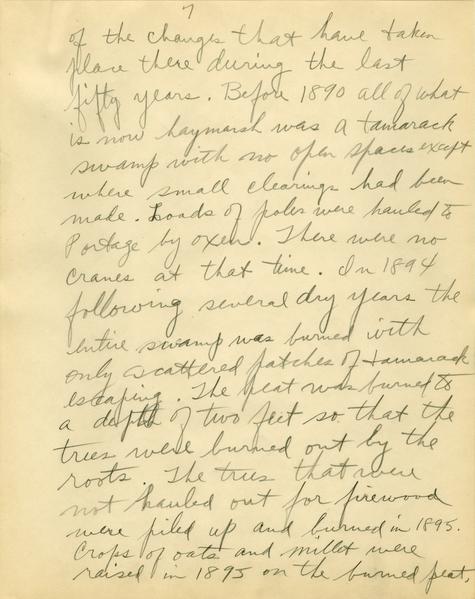 7
of the changes that have taken
place there during the last
fifty years. Before 1890 all of what
is now haymarsh was a tamarack
swamp with no open spaces except
where small clearings had been
made. Loads of poles were hauled to
Portage by oxen. There were no
cranes at that time. In 1894
following several dry years the
entire swamp was burned with
only scattered patches of tamarack
escaping. The peat was burned to
a depth of two feet so that the
trees were burned out by the
roots. The trees that were
not hauled out for firewood
were piled up and burned in 1895.
Crops of oats and millet were
raised in 1895 on the burned peat,